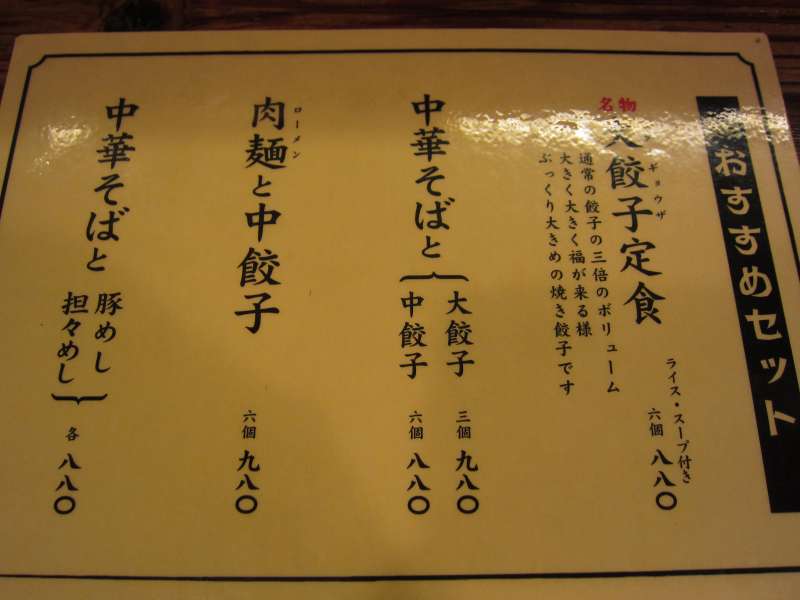 おすすめセット
名物
大餃子定食
ギョウザ
ライス・スープ付き
六個 八八〇
通常の餃子の三倍のボリューム
大きく大きく福が来る様
ぷっくり大きめの焼き餃子です
中華そばと
大餃子 三個 九八〇
中餃子 六個 八八〇
肉麺と中餃子
ローメン
六個 九八〇
中華そばと
豚めし
担々めし
各 八八〇